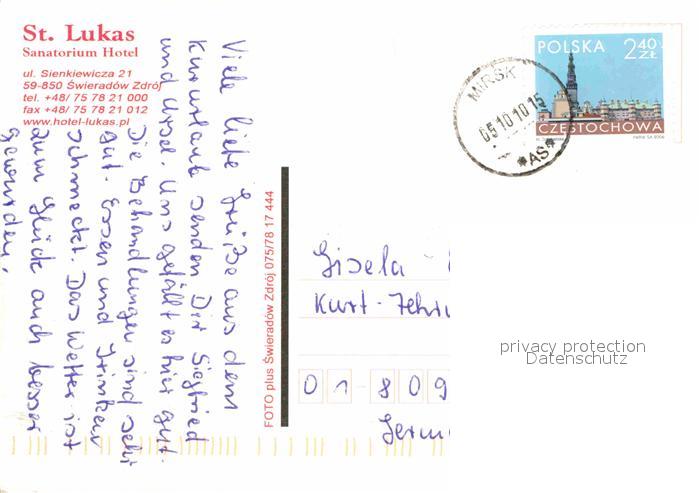 St. Lukas
Sanatorium Hotel
ul. Sienkiewicza 21
59-850 Świeradów Zdrój
tel. +48/ 75 78 21 000
fax +48/ 75 78 21 012
www.hotel-lukas.pl
Viele liebe Grüße aus dem
Kururlaub senden Dir Siegfried
und Ursel. Uns gefällt es hier gut.
Die Behandlungen sind sehr
gut. Essen und Trinken
schmeckt. Das Wetter ist
zum Glück auch besser
geworden.
FOTO plus Świeradów Zdrój 075/78 17 444
POLSKA 2,40 ZŁ
CZĘSTOCHOWA
PWPW SA 2006
MIRSK
05.10.10.15
*AS*
Gisela
Kurt-
01-809
Germ
privacy protection
Datenschutz